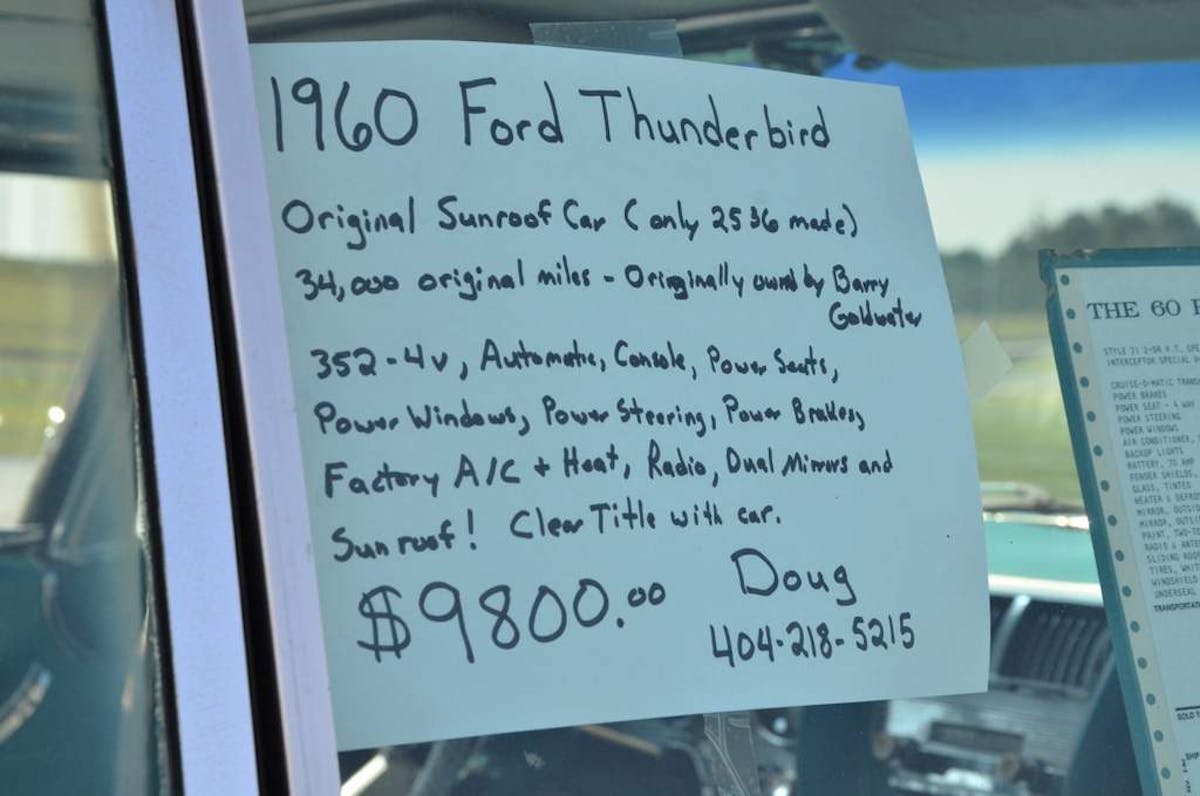 1960 Ford Thunderbird
Original Sunroof Car (only 2536 made)
34,000 original miles - Originally owned by Barry
Goldwater
352-4v, Automatic, Console, Power Seats,
Power Windows, Power Steering, Power Brakes,
Factory A/C + Heat, Radio, Dual Mirrors and
Sunroof! Clear Title with car.
$9800.00 Doug
404-218-5215
THE 60
STYLE 71 2-DR H.T.
INTERCEPTOR SPECIAL
CRUISE-O-MATIC
POWER BRAKES
POWER SEAT - 4 WAY
POWER STEERING
POWER WINDOWS
AIR CONDITIONER,
BACKUP LIGHTS
BATTERY, 70 AMP
FENDER SHIELDS,
GLASS, TINTED
HEATER &
MIRROR,
MIRROR,
PAINT,
RADIO &
SLIDING
TIRES,
UNDERSEAL